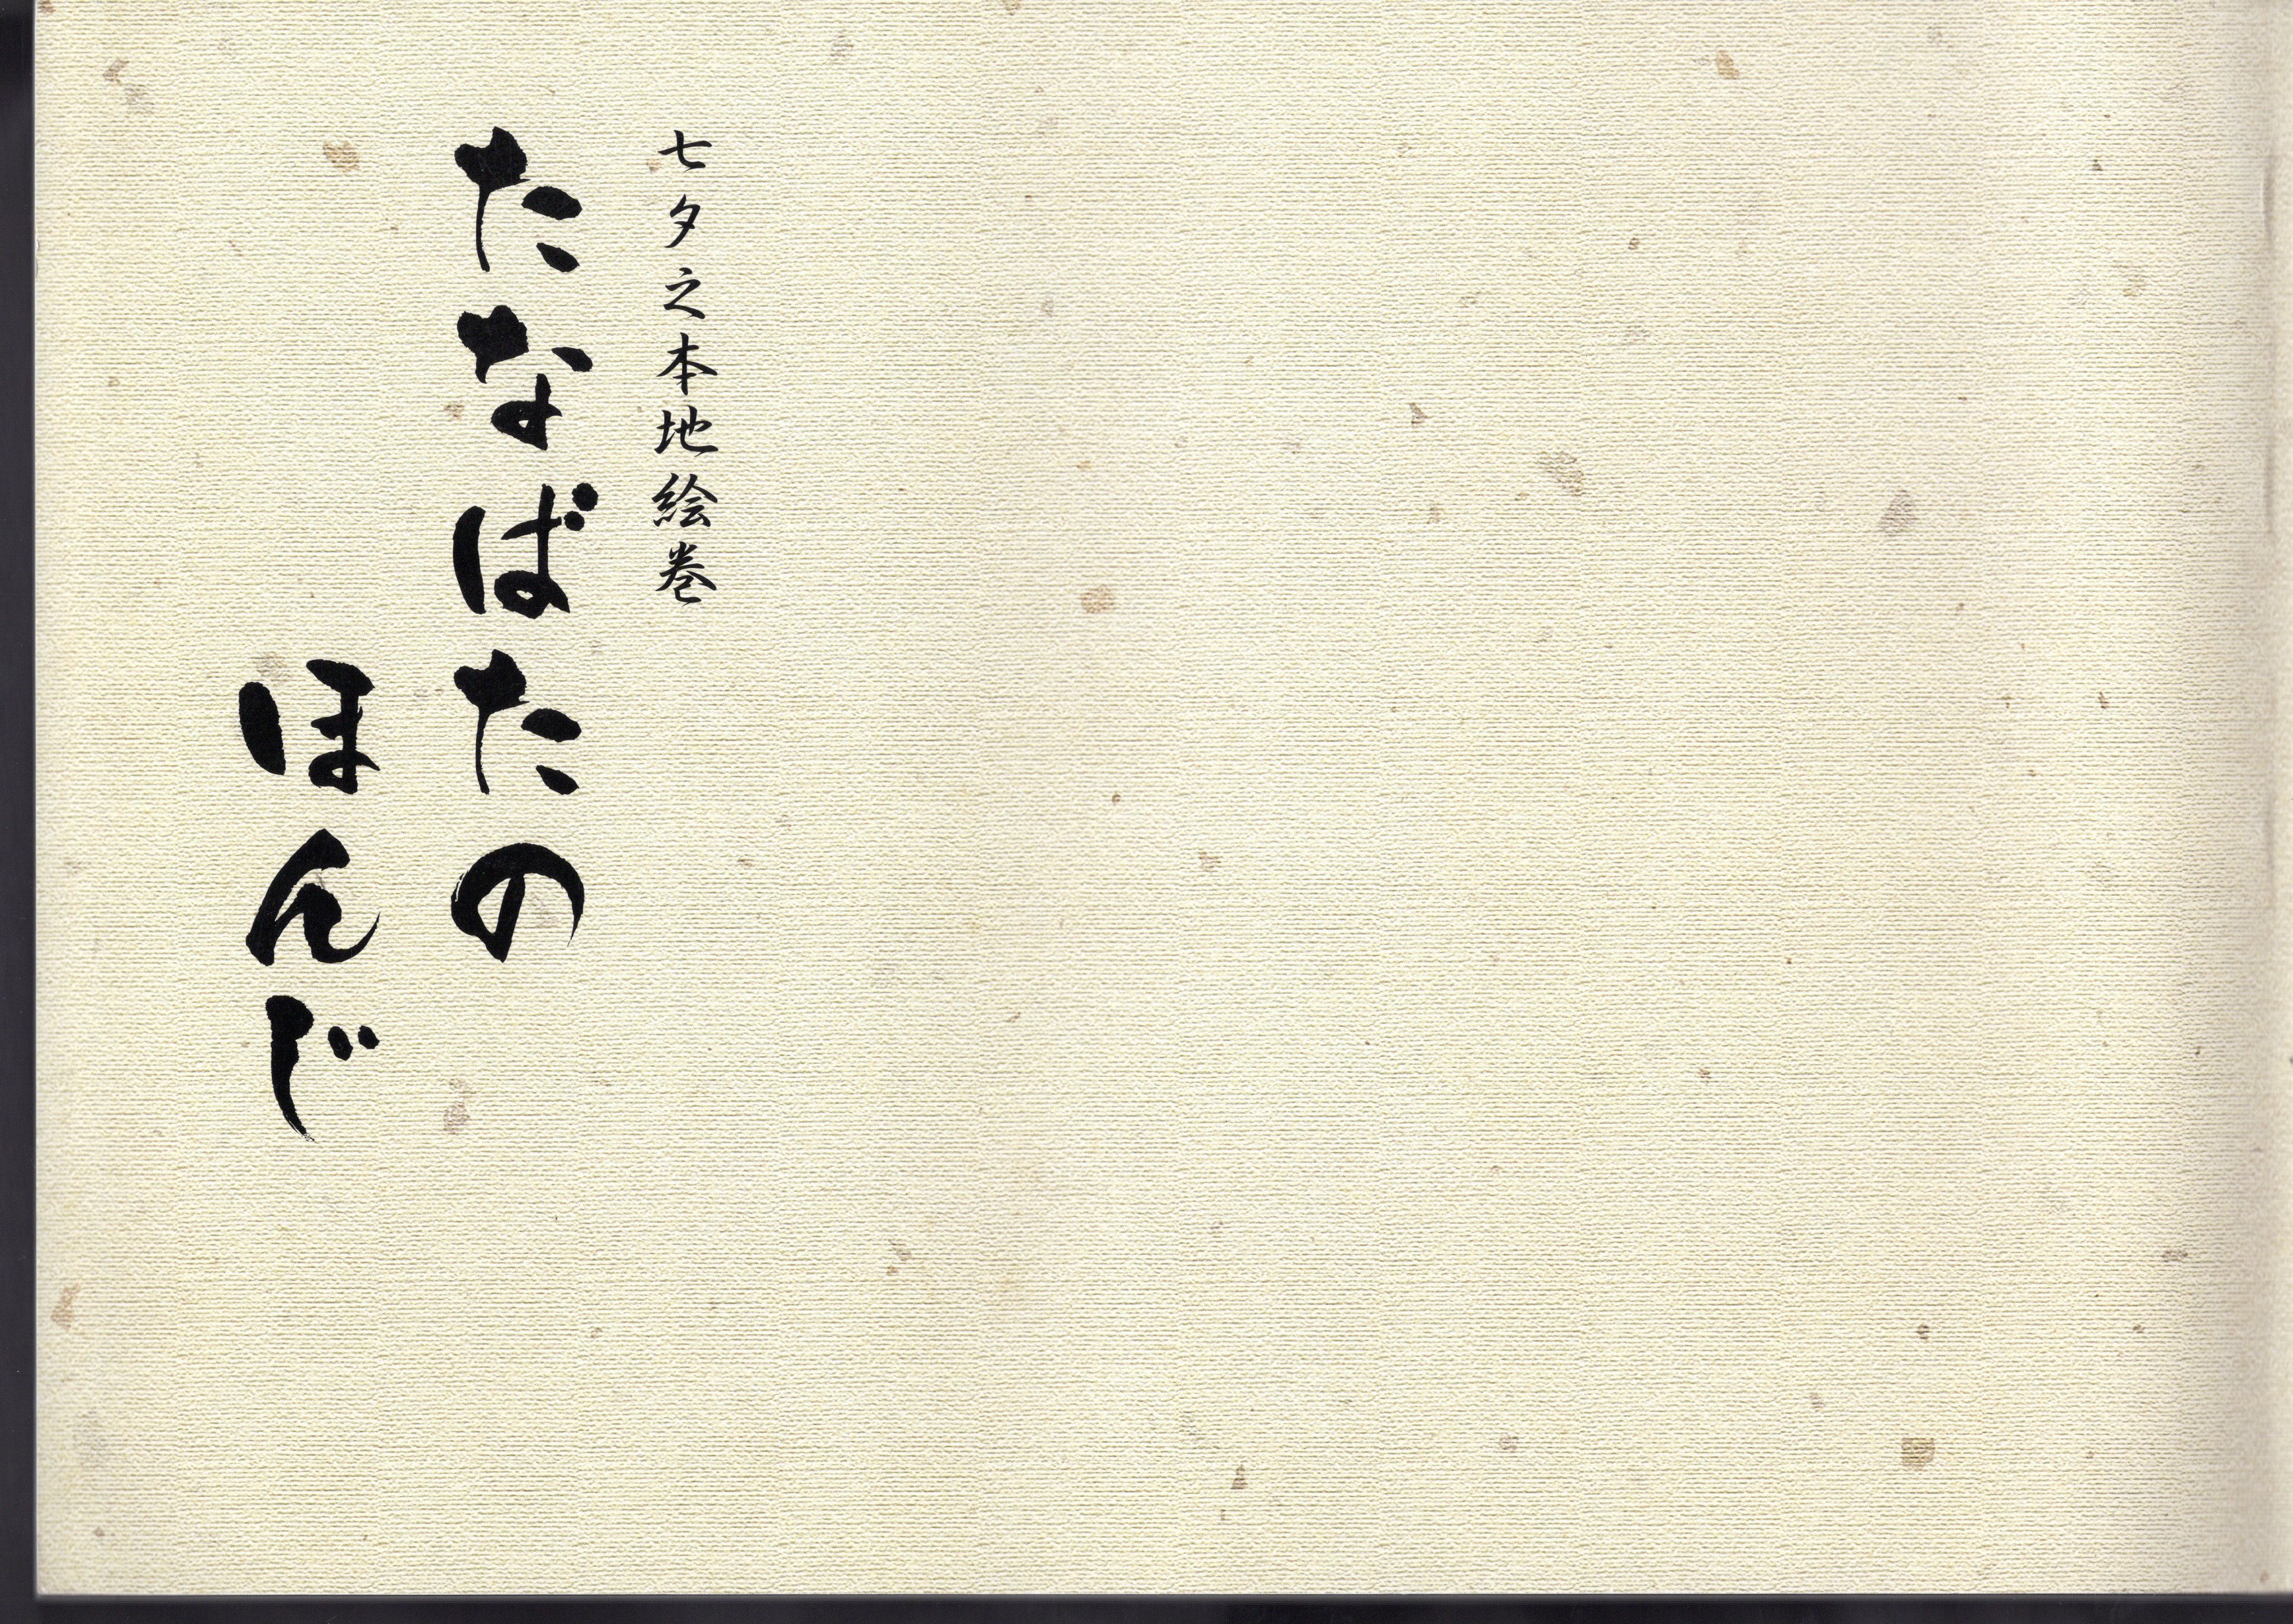 七夕之本地絵巻
たなばたの
ほんじ